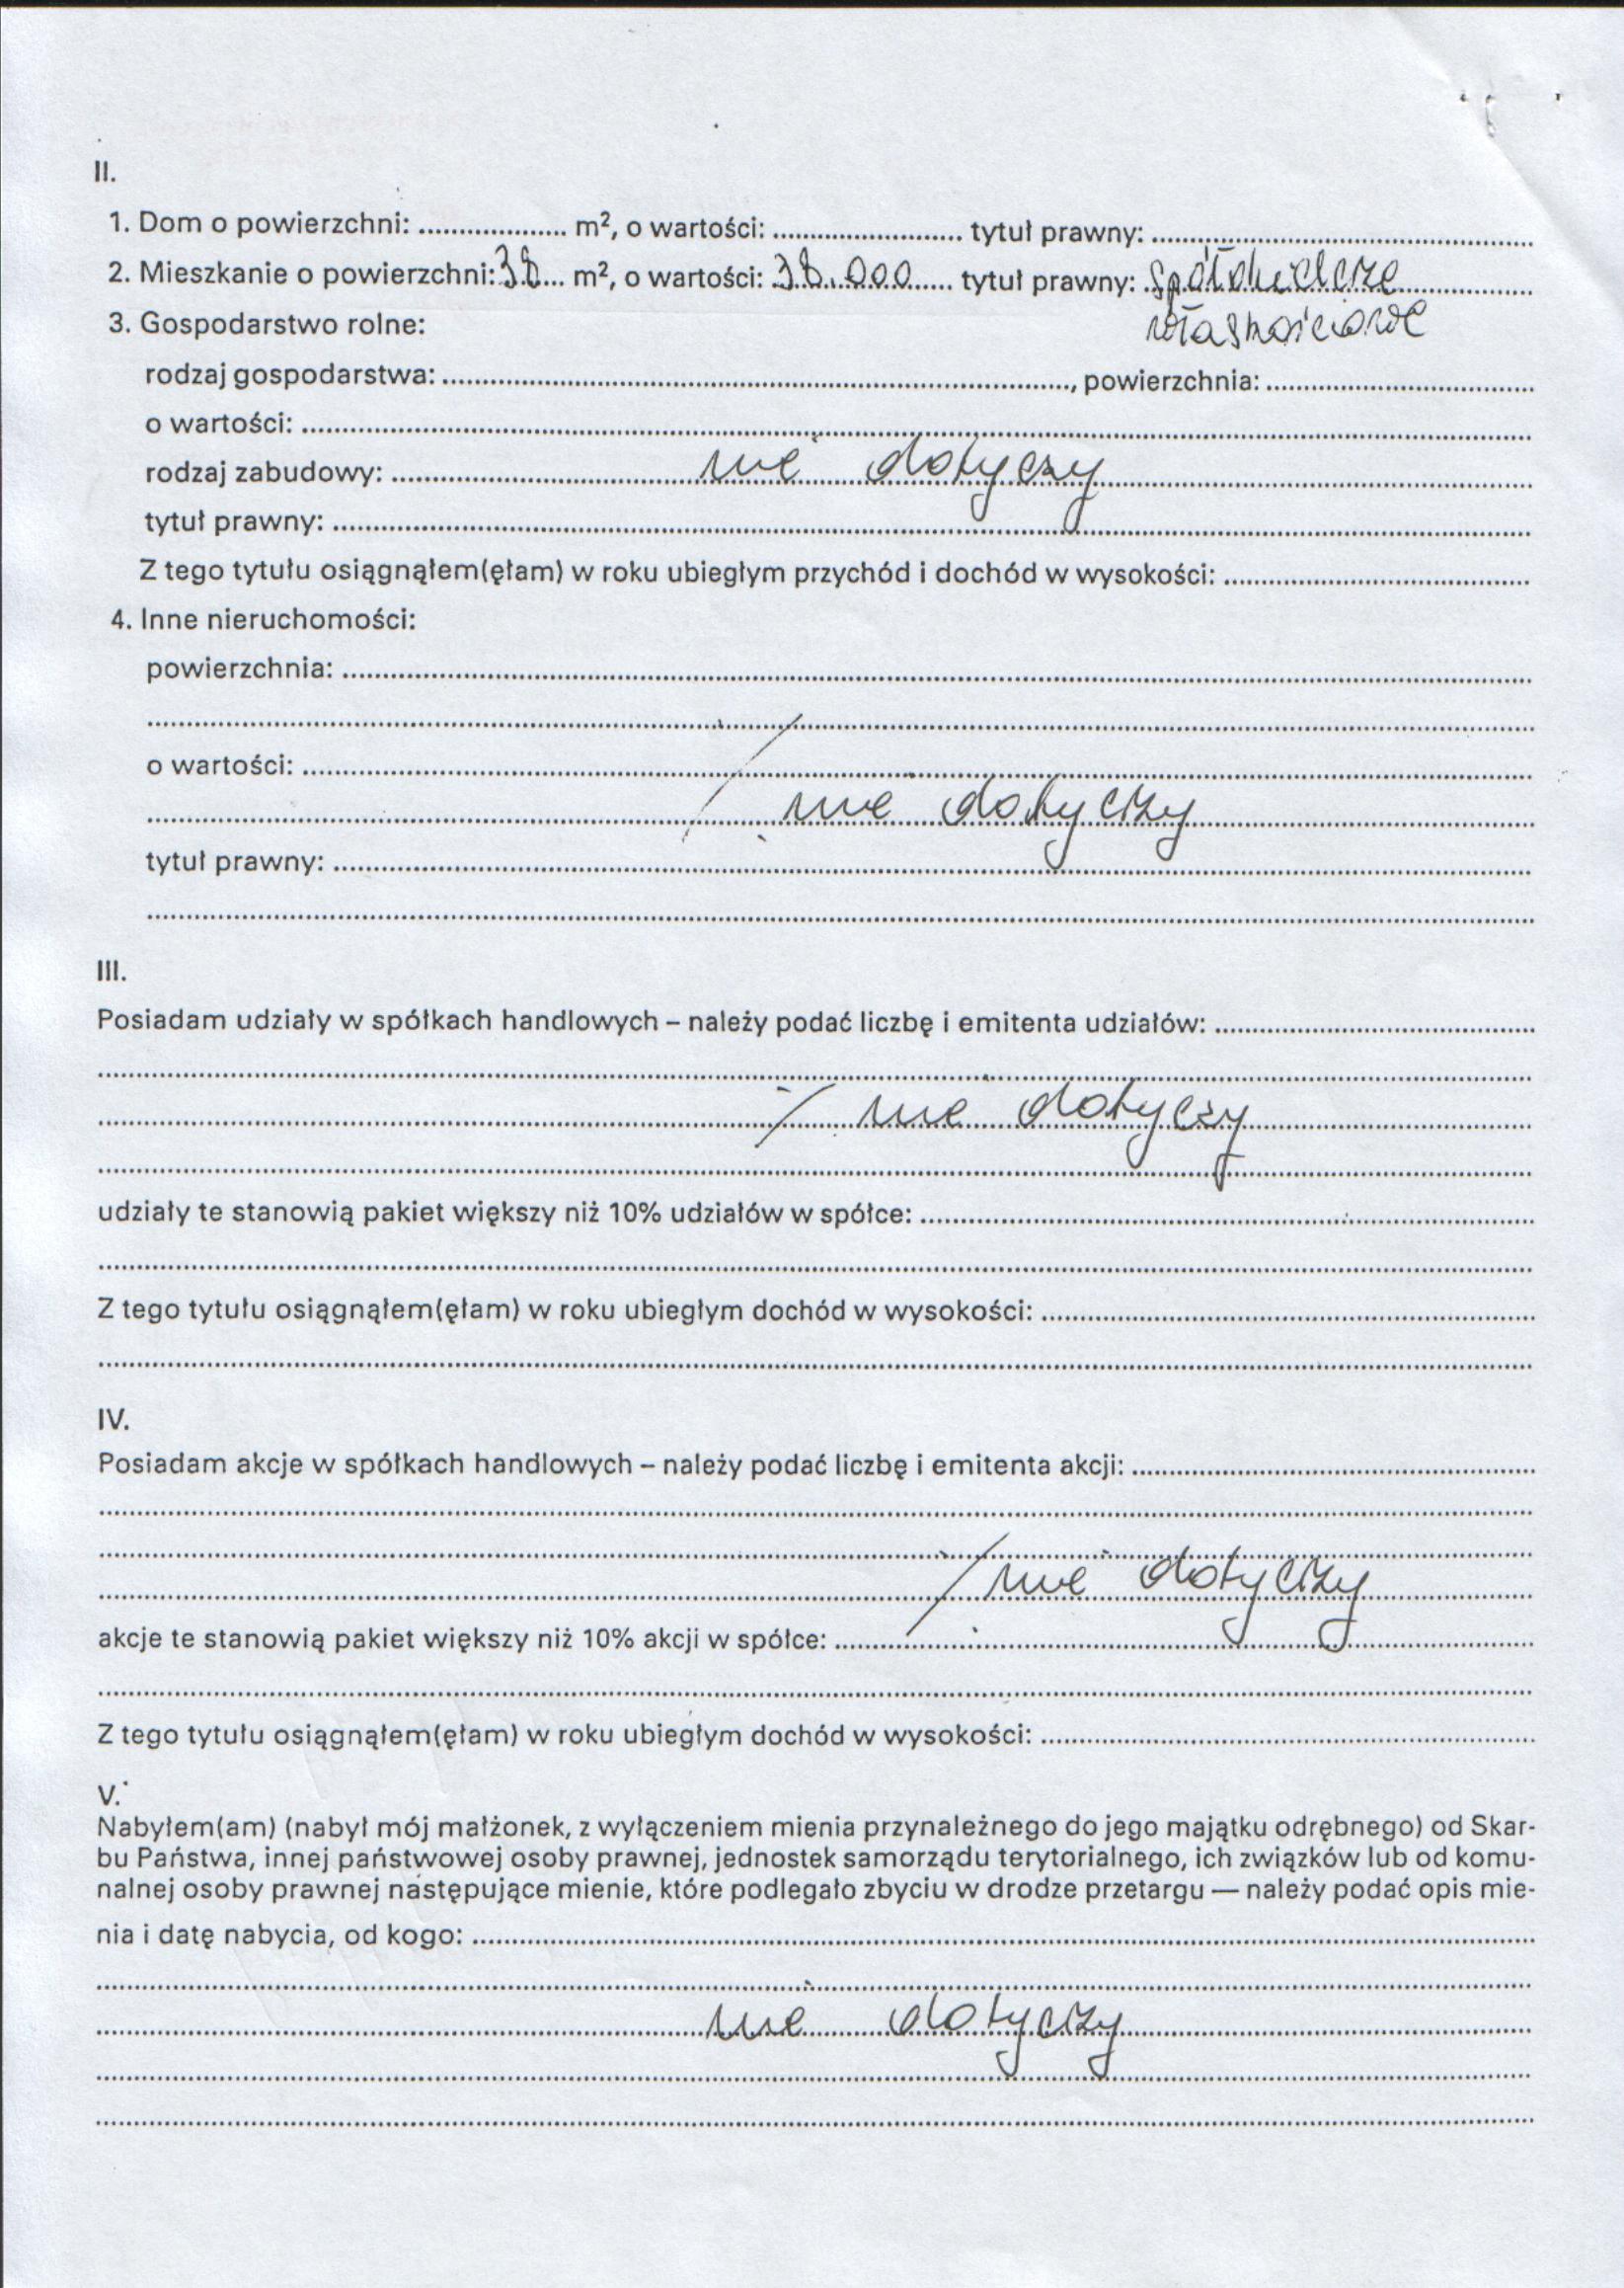 II.
1. Dom o powierzchni: .................. m², o wartości: ........................ tytuł prawny: ................................................
2. Mieszkanie o powierzchni: 38 m², o wartości: 38.000 tytuł prawny: spółdzielcze
własnościowe
3. Gospodarstwo rolne:
rodzaj gospodarstwa: ................................................................................, powierzchnia: ..................................
o wartości: ................................................................................
rodzaj zabudowy: nie dotyczy
tytuł prawny: ................................................................................
Z tego tytułu osiągnąłem(ęłam) w roku ubiegłym przychód i dochód w wysokości: ......................................
4. Inne nieruchomości:
powierzchnia: ................................................................................
................................................................................
o wartości: ................................................................................
/ nie dotyczy
tytuł prawny: ................................................................................
................................................................................
III.
Posiadam udziały w spółkach handlowych – należy podać liczbę i emitenta udziałów: ........................................
................................................................................
/ nie dotyczy
................................................................................
udziały te stanowią pakiet większy niż 10% udziałów w spółce: ................................................................................
................................................................................
Z tego tytułu osiągnąłem(ęłam) w roku ubiegłym dochód w wysokości: ................................................................
................................................................................
IV.
Posiadam akcje w spółkach handlowych – należy podać liczbę i emitenta akcji: ..................................................
................................................................................
................................................................................
/ nie dotyczy
akcje te stanowią pakiet większy niż 10% akcji w spółce: ................................................................................
................................................................................
Z tego tytułu osiągnąłem(ęłam) w roku ubiegłym dochód w wysokości: ................................................................
V.
Nabyłem(am) (nabył mój małżonek, z wyłączeniem mienia przynależnego do jego majątku odrębnego) od Skar-
bu Państwa, innej państwowej osoby prawnej, jednostek samorządu terytorialnego, ich związków lub od komu-
nalnej osoby prawnej następujące mienie, które podlegało zbyciu w drodze przetargu — należy podać opis mie-
nia i datę nabycia, od kogo: ................................................................................
................................................................................
nie dotyczy
................................................................................
................................................................................